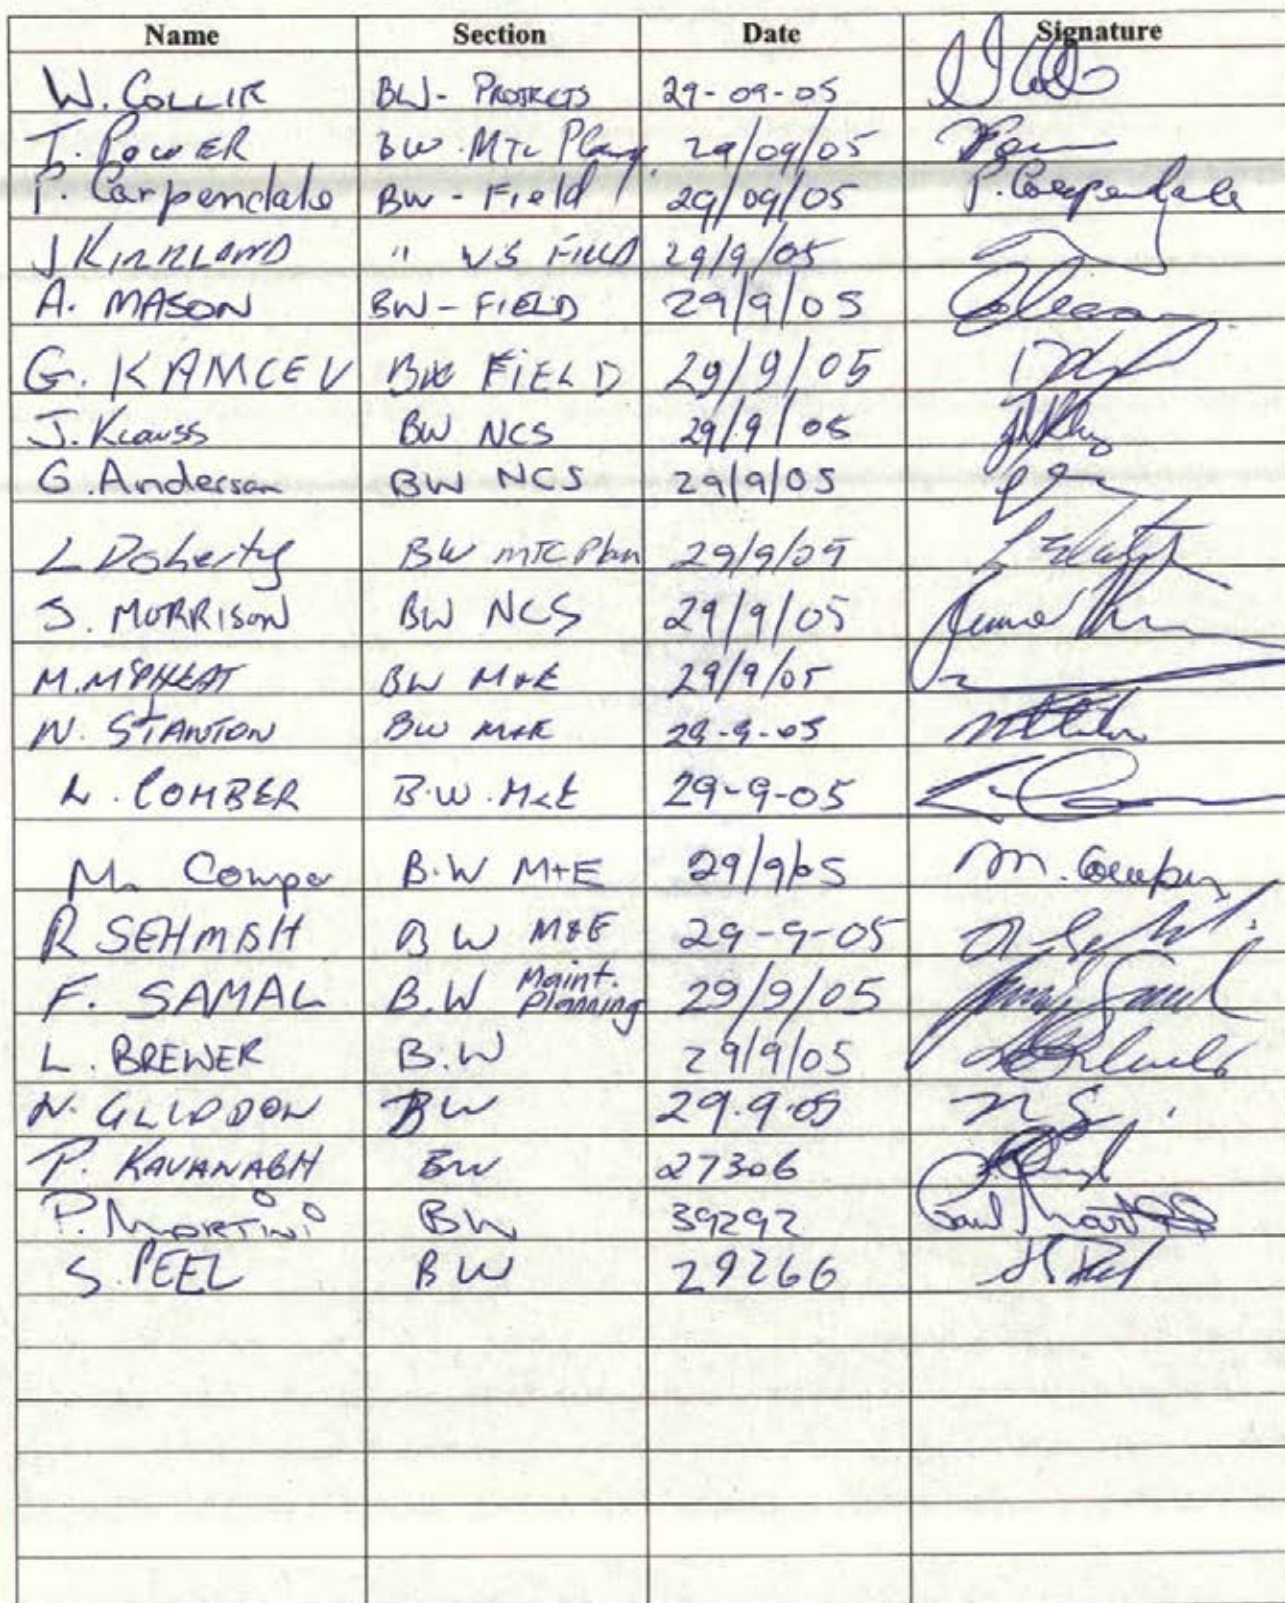 Name Section Date Signature
W. COLLIR BW- PROJECTS 29-09-05
T. POWER BW. MTC Plang. 29/09/05
P. Carpendale BW - Field 29/09/05 P. Carpendale
J KIRKLAND " WS FIELD 29/9/05
A. MASON BW - FIELD 29/9/05
G. KAMCEV BW FIELD 29/9/05
J. Krauss BW NCS 29/9/05
G. Anderson BW NCS 29/9/05
L Doherty BW MTC Plan 29/9/05
J. MORRISON BW NCS 29/9/05
M. MCPHEAT BW M&E 29/9/05
N. STANTON BW M&E 29-9-05
L. COMBER B.W. M&E 29-9-05
M. Compor B.W M+E 29/9/05
R SEHMBH B W M&E 29-9-05
F. SAMAL B.W Maint. Planning 29/9/05
L. BREWER B.W 29/9/05
N. GLIDDON BW 29.9.05 N G
P. KAVANAGH BW 27306
P. MARTINI BW 39292 Paul Martini
S. PEEL BW 29266 S Peel